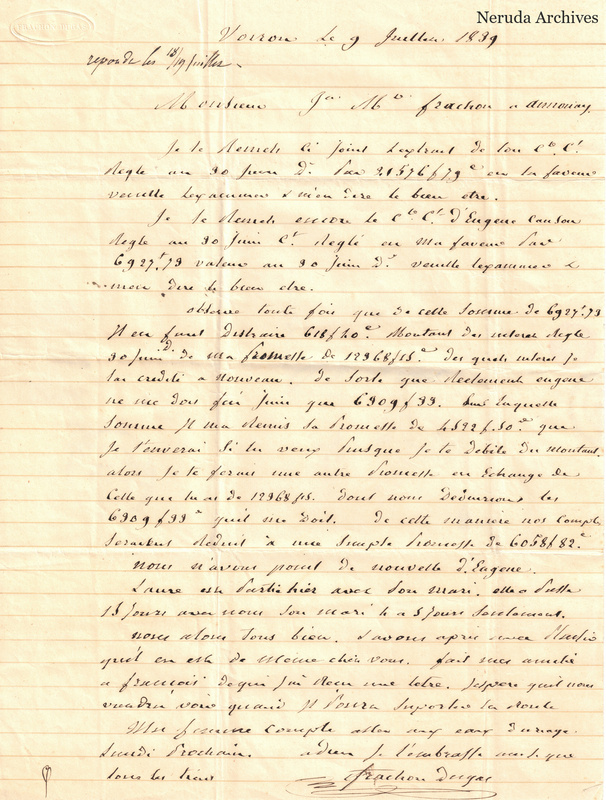 Neruda Archives
Voiron Le 9 Juillet 1839
repondu les 18/19 Juillet
Monsieur Jn Mw frachon a annonay
Je te Remets Ci Joint Lextrait de ton Cte Ct
Reglé au 30 Juin Dr Par 21576f79c en ta faveur
veuille Lexaminer & m'en dire le bien etre.
Je te Remets encore le Cte Ct d'Eugene Canson
Reglé au 30 Juin Ct Reglé en ma faveur Par
6927f.73 valeur au 30 Juin Dr veuille lexaminer &
men dire le bien etre.
observe toute fois que de cette Somme de 6927f.73
Il en faut distraire 618f40c Montant des interets Reglé
30 Juin Dr de ma Promesse de 12368f15c des quels interet Je
tai credité a nouveau. de Sorte que Reelement eugene
ne me doit fin Juin que 6309f33. Sur Laquelle
Somme Il ma Remis Sa Promesse de 4522f.50c que
Je t'enverai Si tu veux Puisque Je te débite du montant.
alors Je te ferais une autre Promesse en Echange de
Celle que tu as de 12368f15. dont nous Deduirions les
6309f33c qu'il me doit. de cette maniere nos Compte
Seraient Reduit à une Simple Promesse de 6058f82c
nous n'avons point de nouvelle d'Eugene.
Laure est Partie hier avec Son mari. elle a Passé
15 Jours avec nous Son mari 4 a 5 Jours Seulement.
nous alons tous bien. Javons apris avec Plaisir
qu'il en est de meme chés vous. fait mes amitié
a françois de qui J'ai Recu une letre. Jespere quil nous
viendra voir quand Il Poura Suporter la Route
Ma femme compte aller aux eaux Duriage
Lundi Prochain. adieu Je t'embrasse ainsi que
tous les tiens frachon Dugas